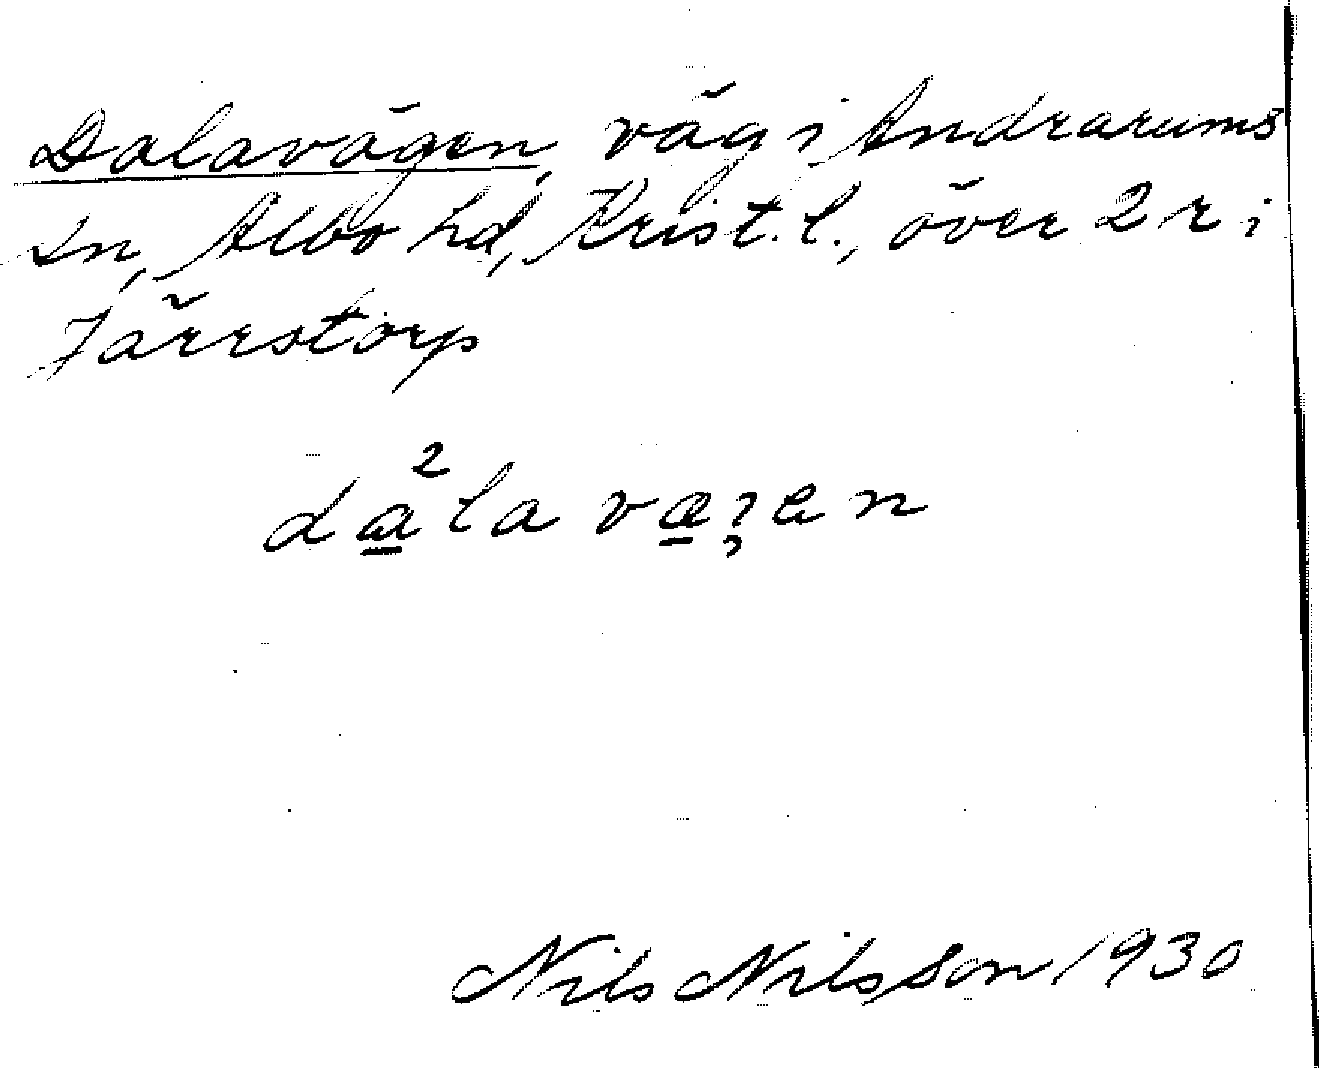 Dalavägen, väg i Andrarums
sn, Albo hd, Krist. l., över 2 r i
Järrstorp
da̲²la væ̲ʒen
Nils Nilsson 1930